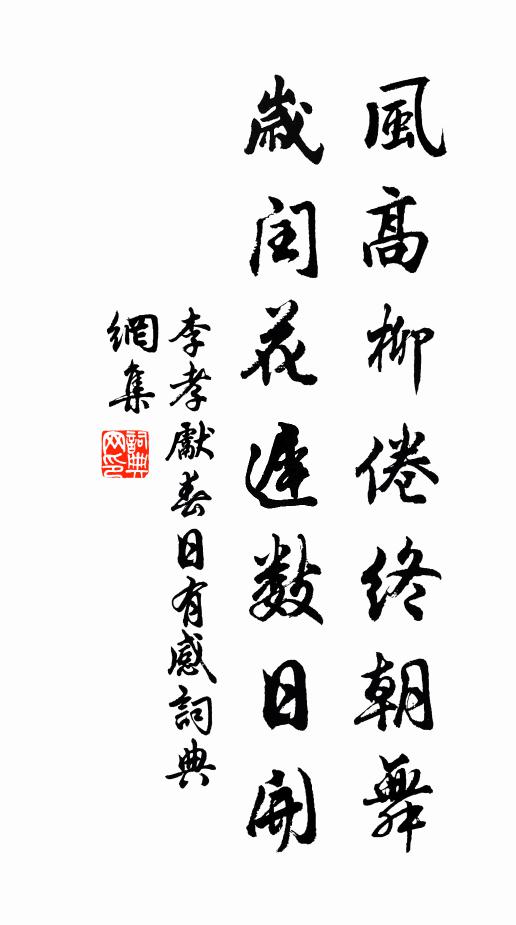 風高柳倦終朝舞
歲閏花遲數日開
李孝獻春日有感詞典
網集
詞典
网印